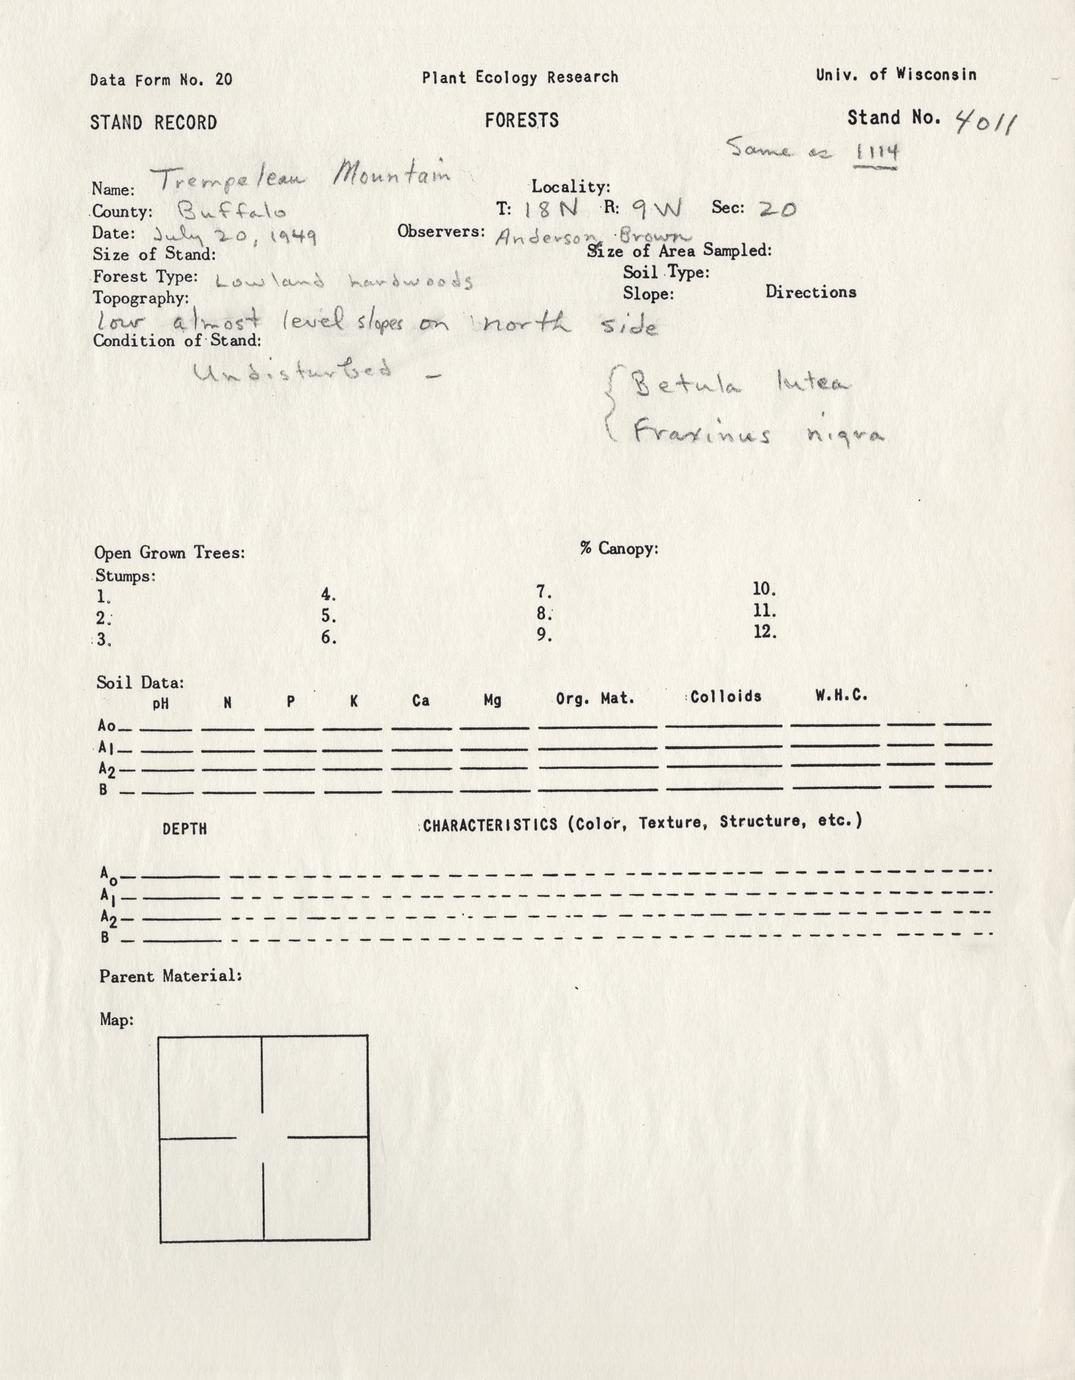 Data Form No. 20 Plant Ecology Research Univ. of Wisconsin
STAND RECORD FORESTS Stand No. 4011
Same as 1114
Name: Trempeleau Mountain Locality:
County: Buffalo T: 18N R: 9W Sec: 20
Date: July 20, 1949 Observers: Anderson, Brown
Size of Stand: Size of Area Sampled:
Forest Type: Lowland hardwoods Soil Type:
Topography: Slope: Directions
low almost level slopes on north side
Condition of Stand:
Undisturbed – { Betula lutea
Fraxinus nigra
Open Grown Trees: % Canopy:
Stumps:
1. 4. 7. 10.
2. 5. 8. 11.
3. 6. 9. 12.
Soil Data:
pH N P K Ca Mg Org. Mat. Colloids W.H.C.
Ao
A1
A2
B
DEPTH CHARACTERISTICS (Color, Texture, Structure, etc.)
Ao
A1
A2
B
Parent Material:
Map: